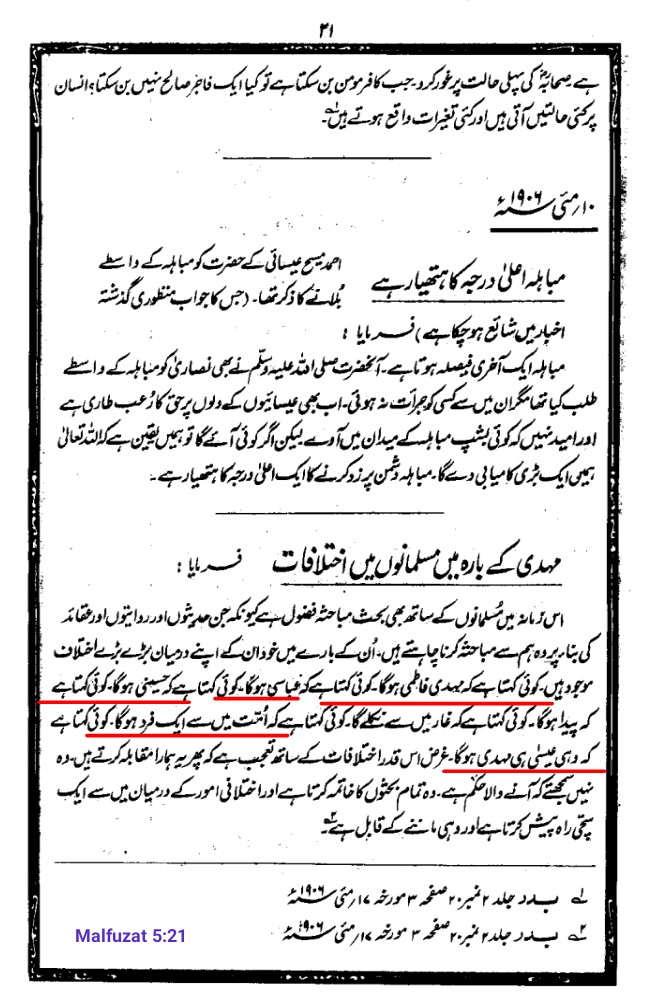 ۲۱
ہے صحابہؓ کی پہلی حالت پر غور کرو۔ جب کافر مومن بن سکتا ہے تو کیا ایک فاجر صالح نہیں بن سکتا؟ انسان
پر کئی حالتیں آتی ہیں اور کئی تغیرات واقع ہوتے ہیں۔
۱۰؍مئی ۱۹۰۶ء
مباہلہ اعلیٰ درجہ کا ہتھیار ہے
احمد مسیح عیسائی کے حضرت کو مباہلہ کے واسطے
بلانے کا ذکر تھا۔ (جس کا جواب منظوری گذشتہ
اخبار میں شائع ہو چکا ہے) فرمایا :
مباہلہ ایک آخری فیصلہ ہوتا ہے۔ آنحضرت صلی اللہ علیہ وسلم نے بھی نصاریٰ کو مباہلہ کے واسطے
طلب کیا تھا مگر ان میں سے کسی کو جرأت نہ ہوئی۔ اب بھی عیسائیوں کے دلوں پر حق کا رُعب طاری ہے
اور امید نہیں کہ کوئی بشپ مباہلہ کے میدان میں آوے لیکن اگر کوئی آئے گا تو ہمیں یقین ہے کہ اللہ تعالیٰ
ہمیں ایک بڑی کامیابی دے گا۔ مباہلہ دشمن پر زد کرنے کا ایک اعلیٰ درجہ کا ہتھیار ہے۔
مہدی کے بارہ میں مسلمانوں میں اختلافات فرمایا :
اس زمانہ میں مُسلمانوں کے ساتھ بھی بحث مباحثہ فضول ہے کیونکہ جن حدیثوں اور روایتوں اور عقائد
کی بناء پر وہ ہم سے مباحثہ کرنا چاہتے ہیں۔ اُن کے بارے میں خود ان کے اپنے درمیان بڑے بڑے اختلاف
موجود ہیں۔ کوئی کہتا ہے کہ مہدی فاطمی ہوگا۔ کوئی کہتا ہے کہ عباسی ہوگا۔ کوئی کہتا ہے کہ حسینی ہوگا۔ کوئی کہتا ہے
کہ پیدا ہوگا۔ کوئی کہتا ہے کہ غار میں سے نکلے گا۔ کوئی کہتا ہے کہ اُمّت میں سے ایک فرد ہوگا۔ کوئی کہتا ہے
کہ وہی عیسیٰ ہی مہدی ہوگا۔ غرض اس قدر اختلافات کے ساتھ تعجب ہے کہ پھر یہ ہمارا مقابلہ کرتے ہیں۔ وہ
نہیں سمجھتے کہ آنے والا حکم ہے۔ وہ تمام بحثوں کا خاتمہ کرتا ہے اور اختلافی امور کے درمیان میں سے ایک
سچی راہ پیش کرتا ہے اور وہی ماننے کے قابل ہے۔
۱؎ بدر جلد ۲ نمبر ۲۰ صفحہ ۳ مورخہ ۱۷؍مئی ۱۹۰۶ء
۲؎ بدر جلد ۲ نمبر ۲۰ صفحہ ۳ مورخہ ۱۷؍مئی ۱۹۰۶ء
Malfuzat 5:21